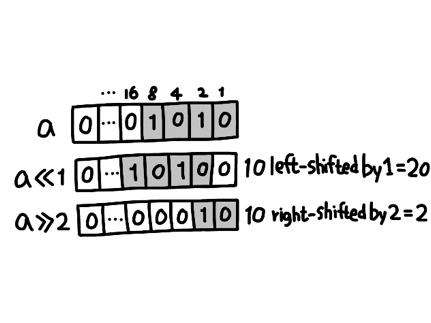 ... 16 8 4 2 1
a 0 ... 0 1 0 1 0
a<<1 0 ... 1 0 1 0 0 10 left-shifted by 1=20
a>>2 0 ... 0 0 0 1 0 10 right-shifted by 2=2